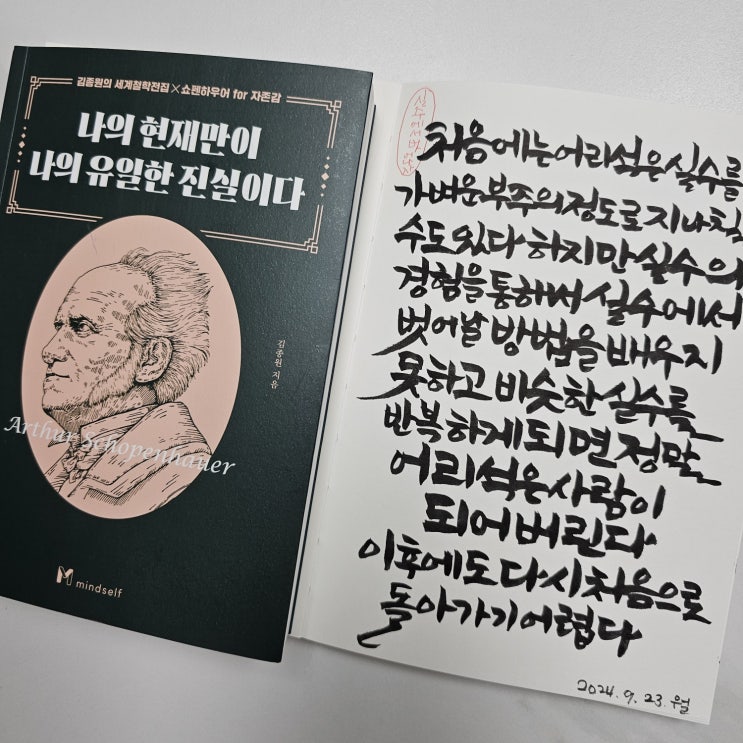 김종원의 세계철학전집×쇼펜하우어 for 자존감
나의 현재만이
나의 유일한 진실이다
김종원 지음
Arthur Schopenhauer
mindself
실수에서 벗
처음에는 어리석은 실수를
가벼운 부주의 정도로 지나칠
수도 있다 하지만 실수의
경험을 통해서 실수에서
벗어날 방법을 배우지
못하고 비슷한 실수를
반복하게 되면 정말
어리석은 사람이
되어 버린다
이후에도 다시 처음으로
돌아가기 어렵다
2024. 9. 23. 월